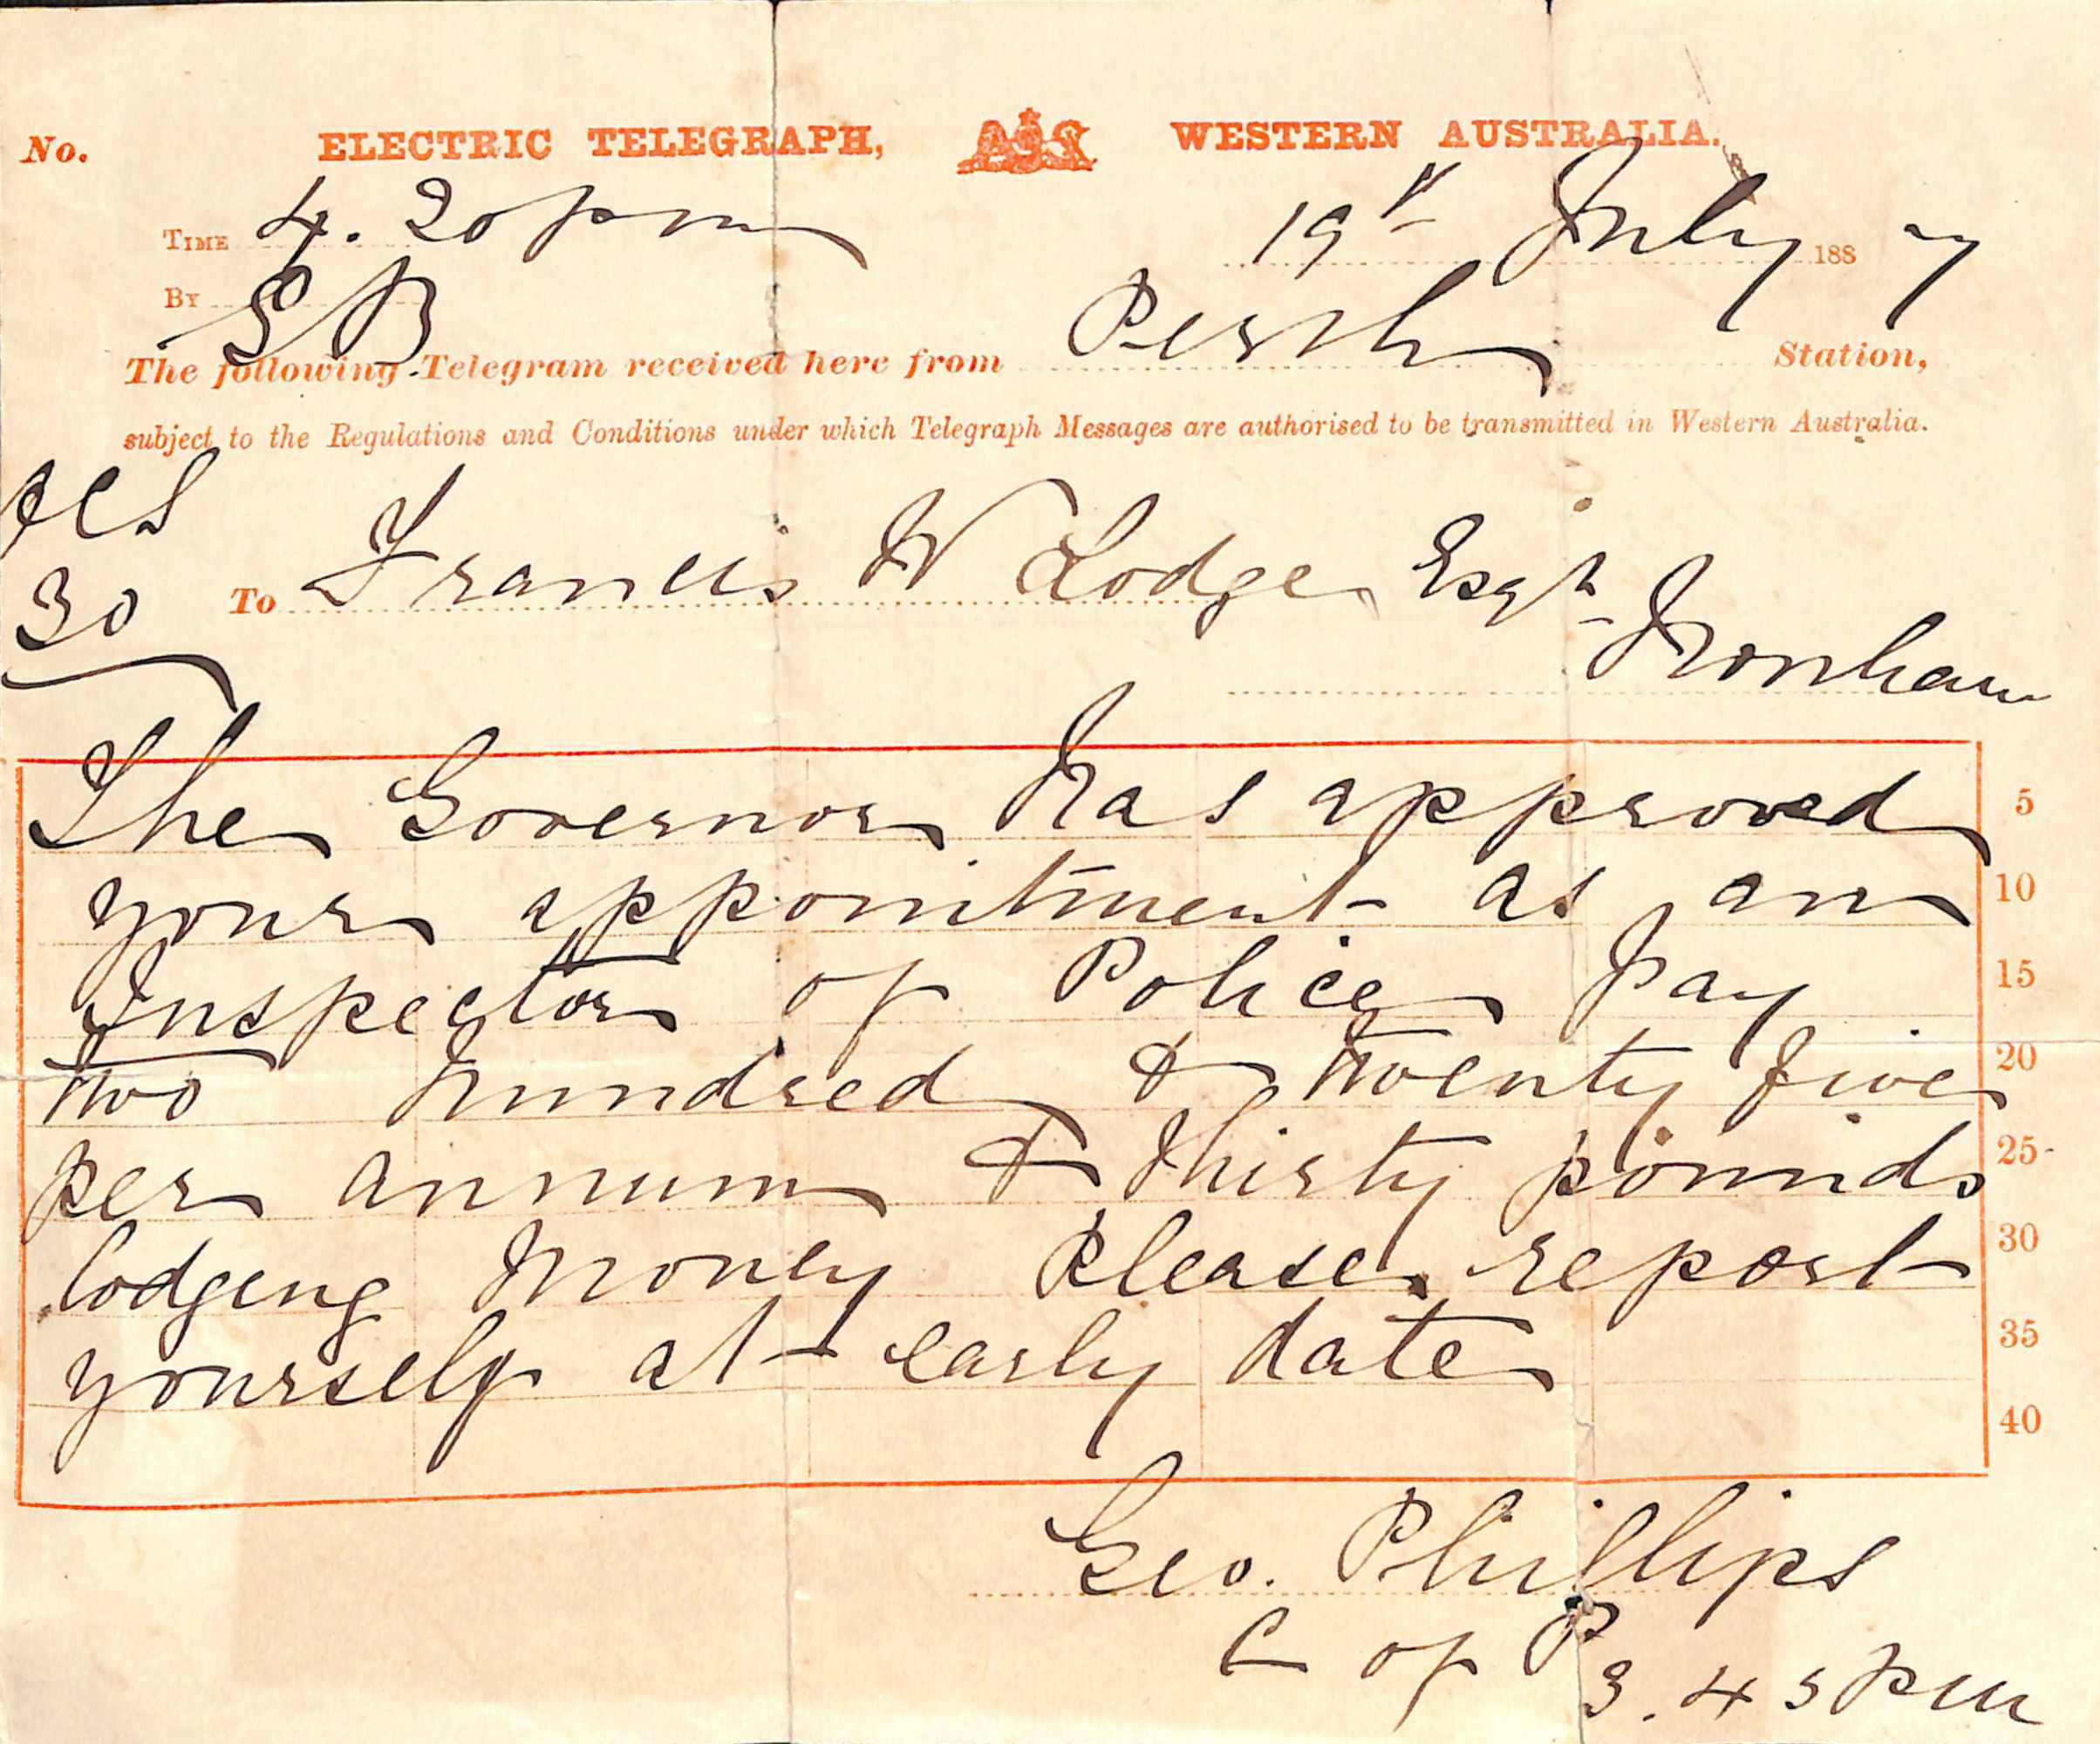 No. ELECTRIC TELEGRAPH, WESTERN AUSTRALIA.
TIME 4.20 pm 19th July 1887
By SB
The following Telegram received here from Perth Station,
subject to the Regulations and Conditions under which Telegraph Messages are authorised to be transmitted in Western Australia.
30
To Francis W Lodge Esqr
Northam
The Governor has approved 5
your appointment as an 10
Inspector of Police Pay 15
two hundred & twenty five 20
per annum & thirty pounds 25
lodging money Please report 30
yourself at early date 35
40
Geo. Phillips
C of P
3.45 pm